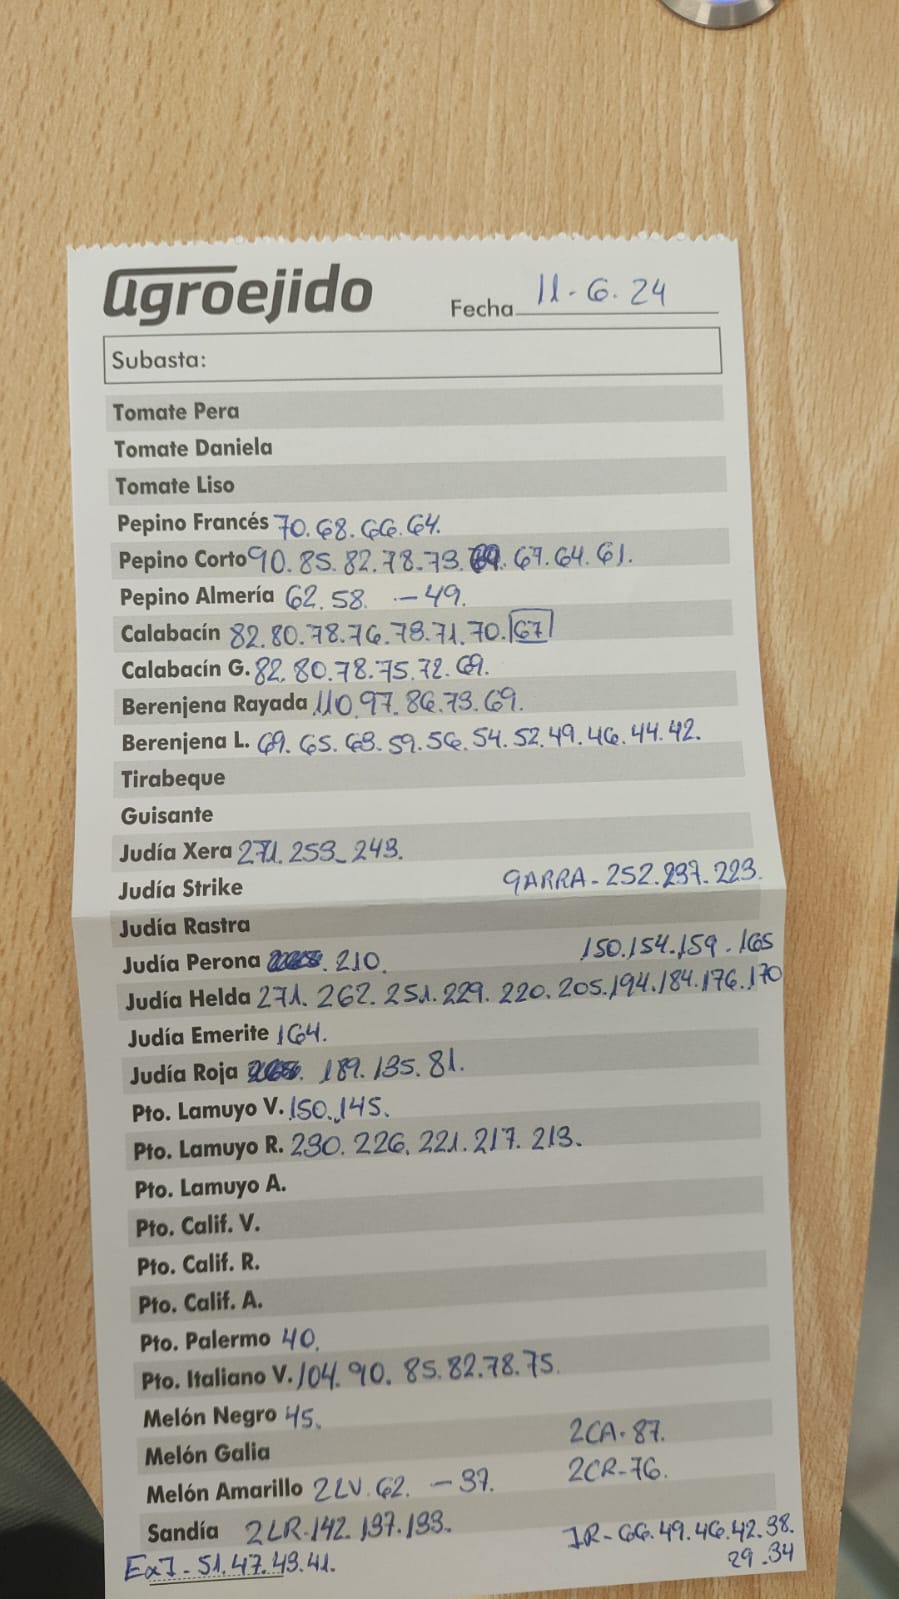 agroejido
Fecha 11-6.24
Subasta:
Tomate Pera
Tomate Daniela
Tomate Liso
Pepino Francés 70.68.66.64.
Pepino Corto 90.85.82.78.73. 67.64.61.
Pepino Almería 62.58. -49.
Calabacín 82.80.78.76.73.71.70.67
Calabacín G. 82.80.78.75.72.69.
Berenjena Rayada 110.97.86.73.69.
Berenjena L. 69.65.63.59.56.54.52.49.46.44.42.
Tirabeque
Guisante
Judía Xera 271.253_243.
Judía Strike GARRA-252.237.223.
Judía Rastra
Judía Perona 210. 150.154.159.165
Judía Helda 271.262.251.229.220.205.194.184.176.170
Judía Emerite 164.
Judía Roja 189.135.81.
Pto. Lamuyo V. 150.145.
Pto. Lamuyo R. 230.226.221.217.213.
Pto. Lamuyo A.
Pto. Calif. V.
Pto. Calif. R.
Pto. Calif. A.
Pto. Palermo 40.
Pto. Italiano V. 104.90.85.82.78.75.
Melón Negro 45.
Melón Galia 2CA-87.
Melón Amarillo 2LV.62. -37. 2CR-76.
Sandía 2LR-142.137.133. JR-66.49.46.42.38.
29.34
ExJ-51.47.43.41.